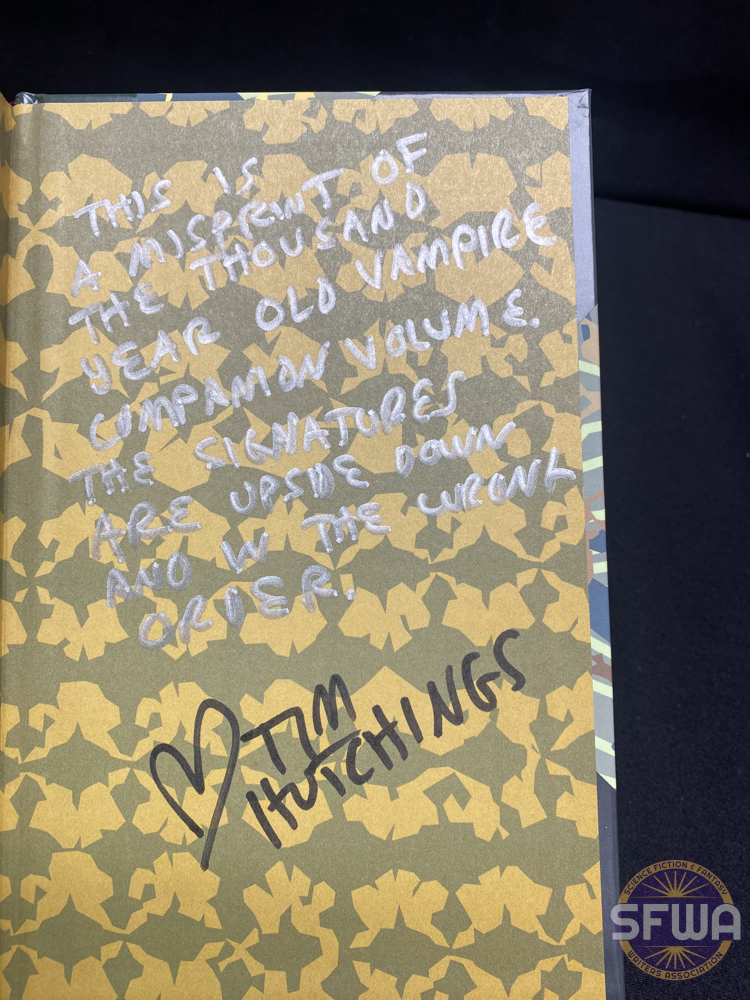 THIS IS
A MISPRINT OF
THE THOUSAND
YEAR OLD VAMPIRE
COMPANION VOLUME.
THE SIGNATURES
ARE UPSIDE DOWN
AND IN THE WRONG
ORDER.
TIM
HUTCHINGS
SCIENCE FICTION & FANTASY
SFWA
WRITERS ASSOCIATION